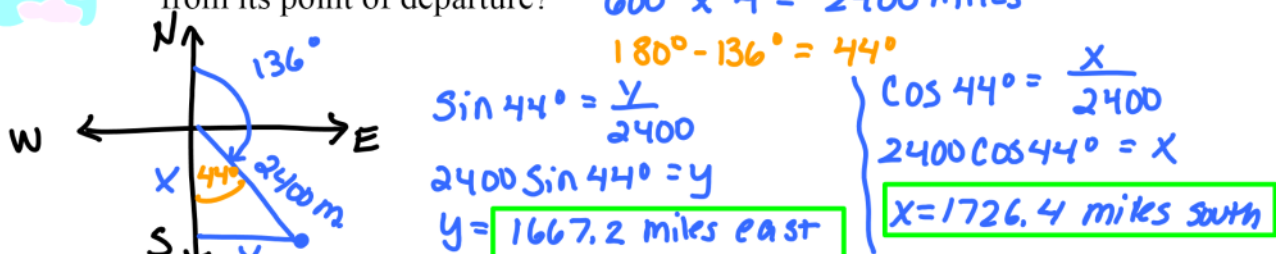 from its point of departure?
600 x 4 = 2400 miles
180° - 136° = 44°
N
136°
W
E
X
44°
2400 m
S
y
Sin 44° = y/2400
2400 Sin 44° = y
y = 1667.2 miles east
Cos 44° = X/2400
2400 Cos 44° = X
X = 1726.4 miles south